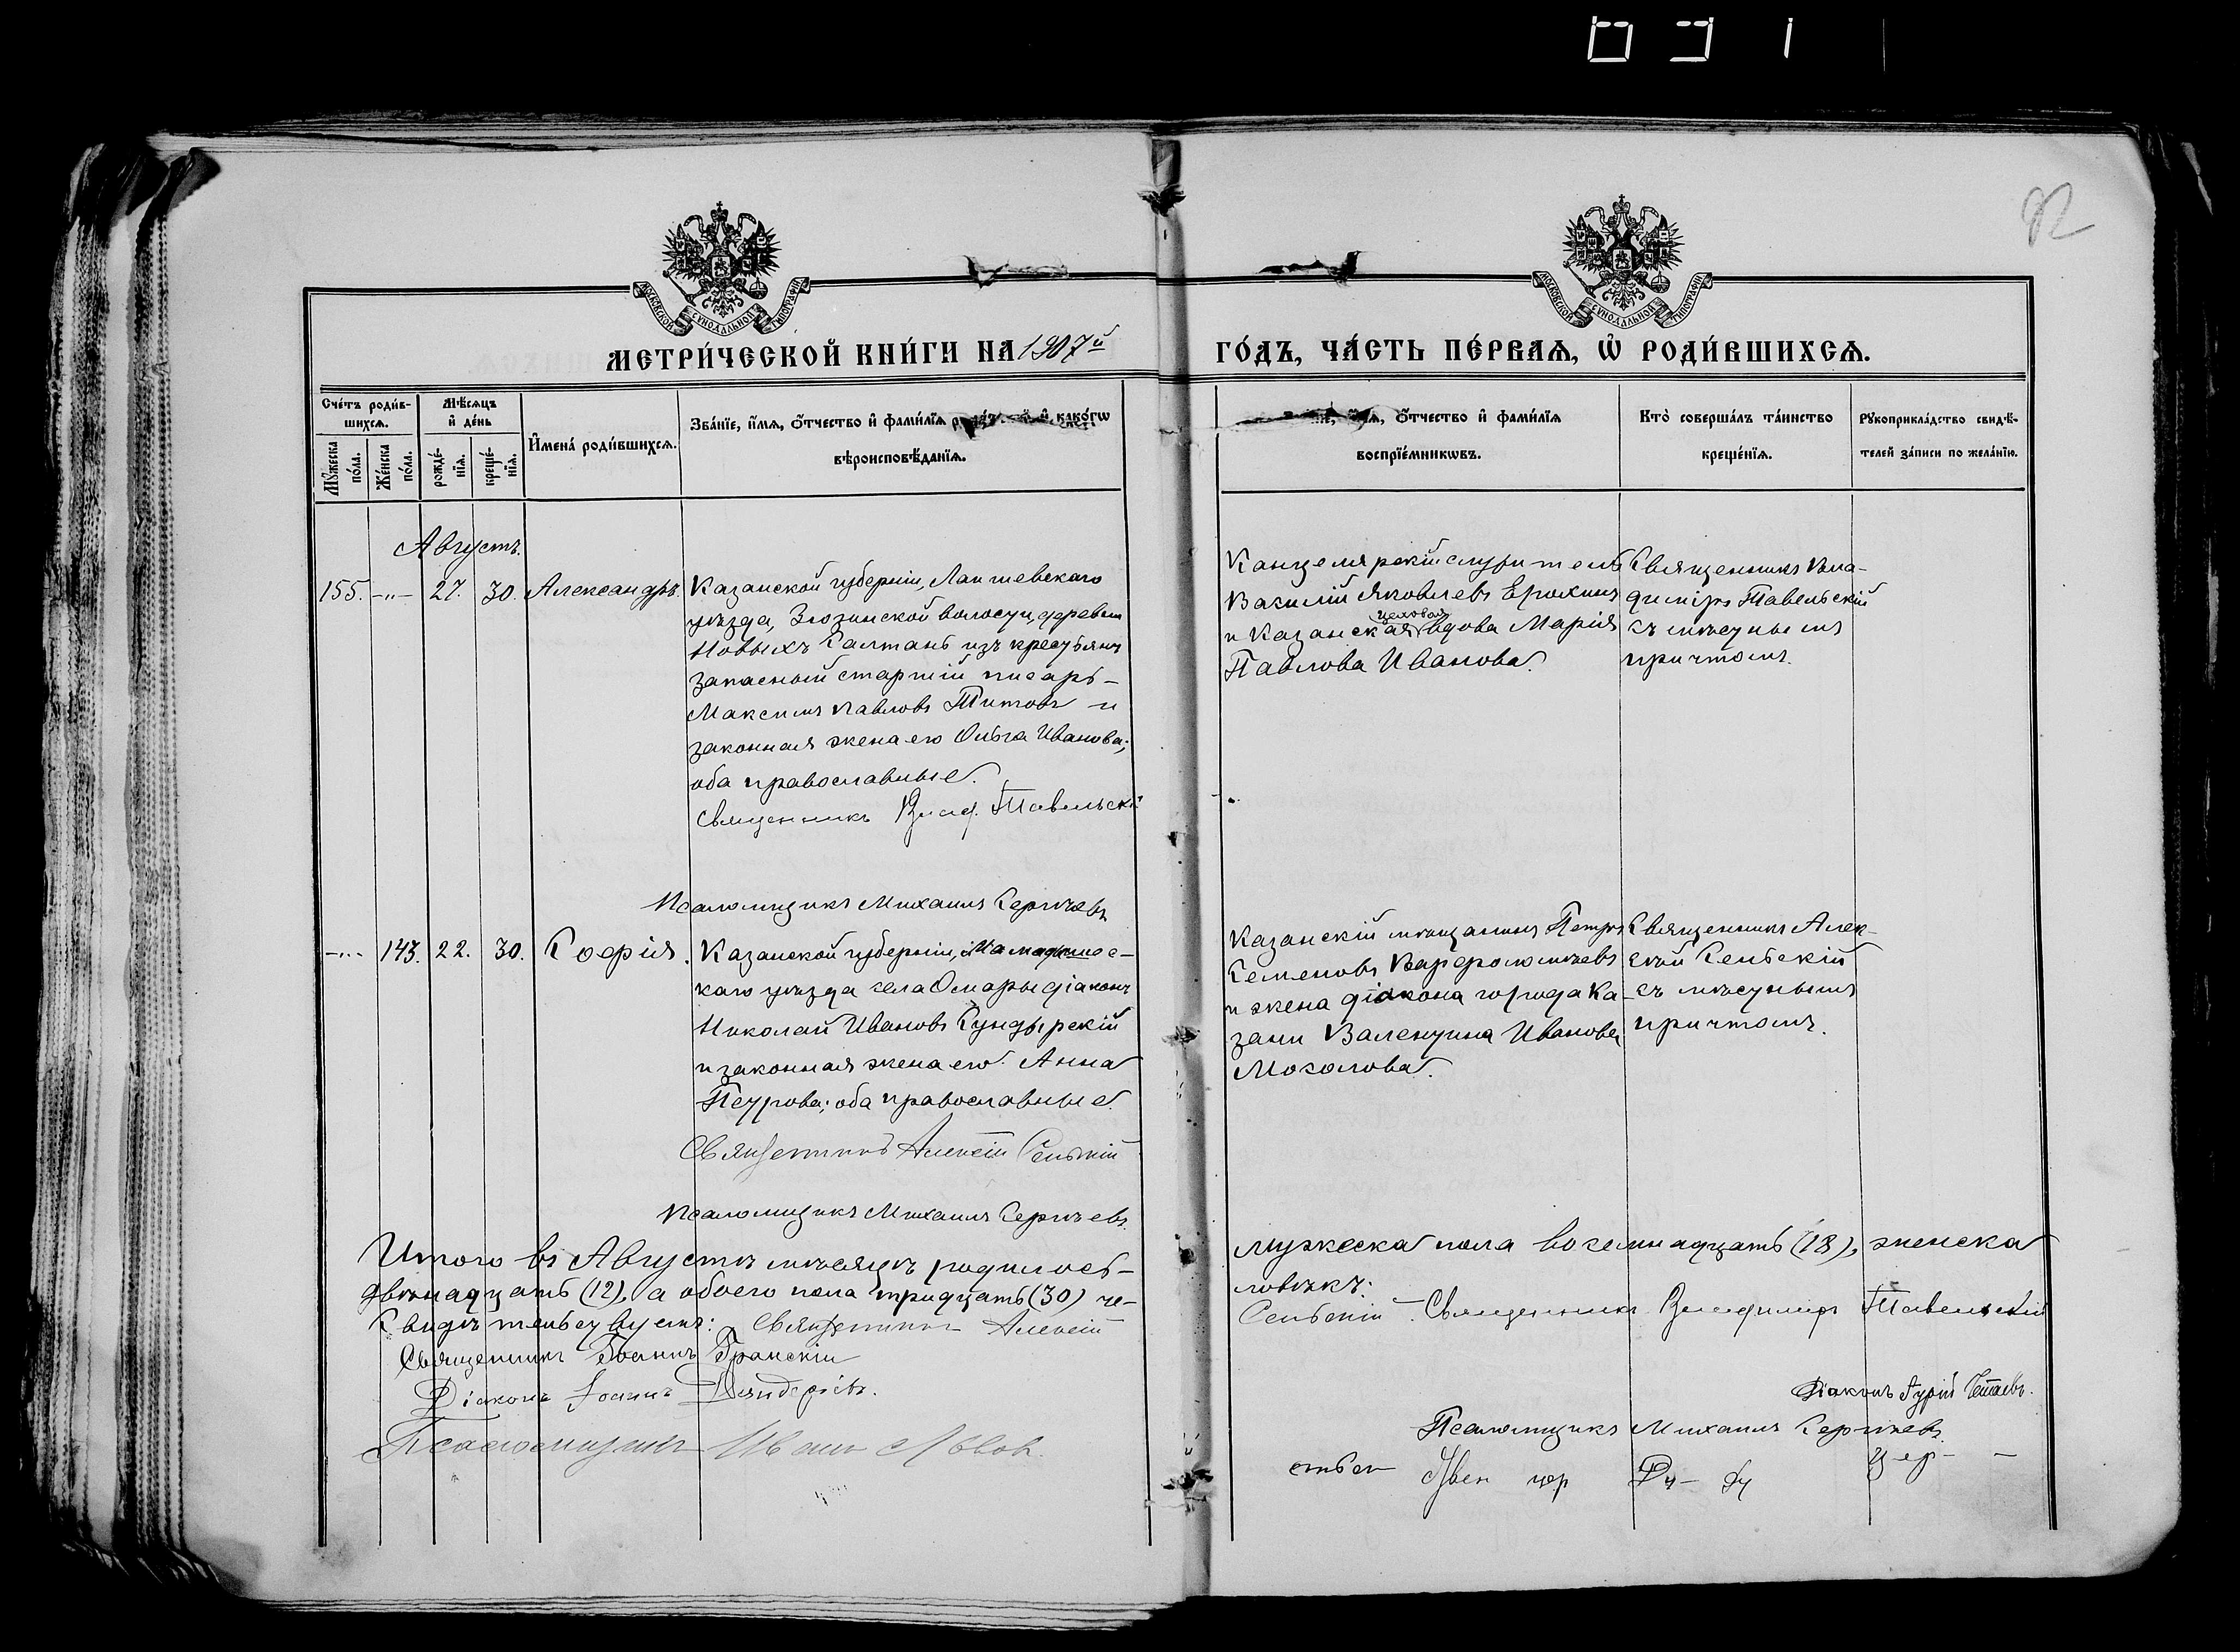 031
82
МОСКОВСКОЙ СѴНОДАЛЬНОЙ ТИПОГРАФІИ
МОСКОВСКОЙ СѴНОДАЛЬНОЙ ТИПОГРАФІИ
МЕТРИ́ЧЕСКОЙ КНИ́ГИ НА 1907й
ГО́ДЪ, ЧА́СТЬ ПЕ́РВАѦ, Ѡ҆ РОДИ́ВШИХСѦ.
Сче́тъ роди́в-
шихсѧ.
Мꙋ́жеска по́ла.
Же́нска по́ла.
Мѣ́сѧцъ
и҆ де́нь
рожде́-
нїѧ.
креще́-
нїѧ.
И҆мена̀ роди́вшихсѧ.
Зва́нїе, и҆́мѧ, ѻ҆́тчество и҆ фами́лїѧ и҆ како́гѡ
вѣроисповѣ́данїѧ.
ѻ҆́тчество и҆ фами́лїѧ
воспрїе́мникѡвъ.
Кто̀ соверша́лъ та́инство
креще́нїѧ.
Рꙋкоприкла́дство свидѣ́-
телей за́писи по жела́нїю.
Августъ.
155. -„- 27. 30. Александръ.
Казанской губерніи, Лаишевскаго
уѣзда, Зюзинской волости, деревни
Новыхъ Салтанъ изъ крестьянъ
запасный старшій писарь -
Максимъ Павловъ Титовъ и
законная жена его Ольга Иванова;
оба православные.
Священникъ Влад. Тавельскій
Псаломщикъ Михаилъ Сергѣевъ
Канцелярскій служитель
Василій Яковлевъ Ерохинъ
цеховая
и Казанская вдова Марія
Павлова Иванова.
Священникъ Вла-
диміръ Тавельскій
съ мѣстнымъ
причтомъ.
-„- 143. 22. 30. Софія.
Казанской губерніи, Мамадышс-
каго уѣзда села Омары діаконъ
Николай Ивановъ Сундырскій
и законная жена его Анна
Петрова; оба православные.
Священникъ Алексій Сельскій
Псаломщикъ Михаилъ Сергѣевъ.
Казанскій мѣщанинъ Петръ
Семеновъ Варфоломѣевъ
и жена діакона города Ка-
зани Валентина Иванова
Мохалова.
Священникъ Алек-
сѣй Сельскій
съ мѣстнымъ
причтомъ.
Итого въ Августѣ мѣсяцѣ родилось - мужеска пола восемнадцать (18), женска
двѣнадцать (12), а обоего пола тридцать (30) че- ловѣкъ.
Свидѣтельствуемъ: Священникъ Алексій Сельскій - Священникъ Владиміръ Тавельскій
Священникъ Іоаннъ Гранскій
Діаконъ Іоаннъ
Діаконъ Гурій
Псаломщикъ Михаилъ Сергѣевъ.
Псаломщикъ Иванъ Львов.